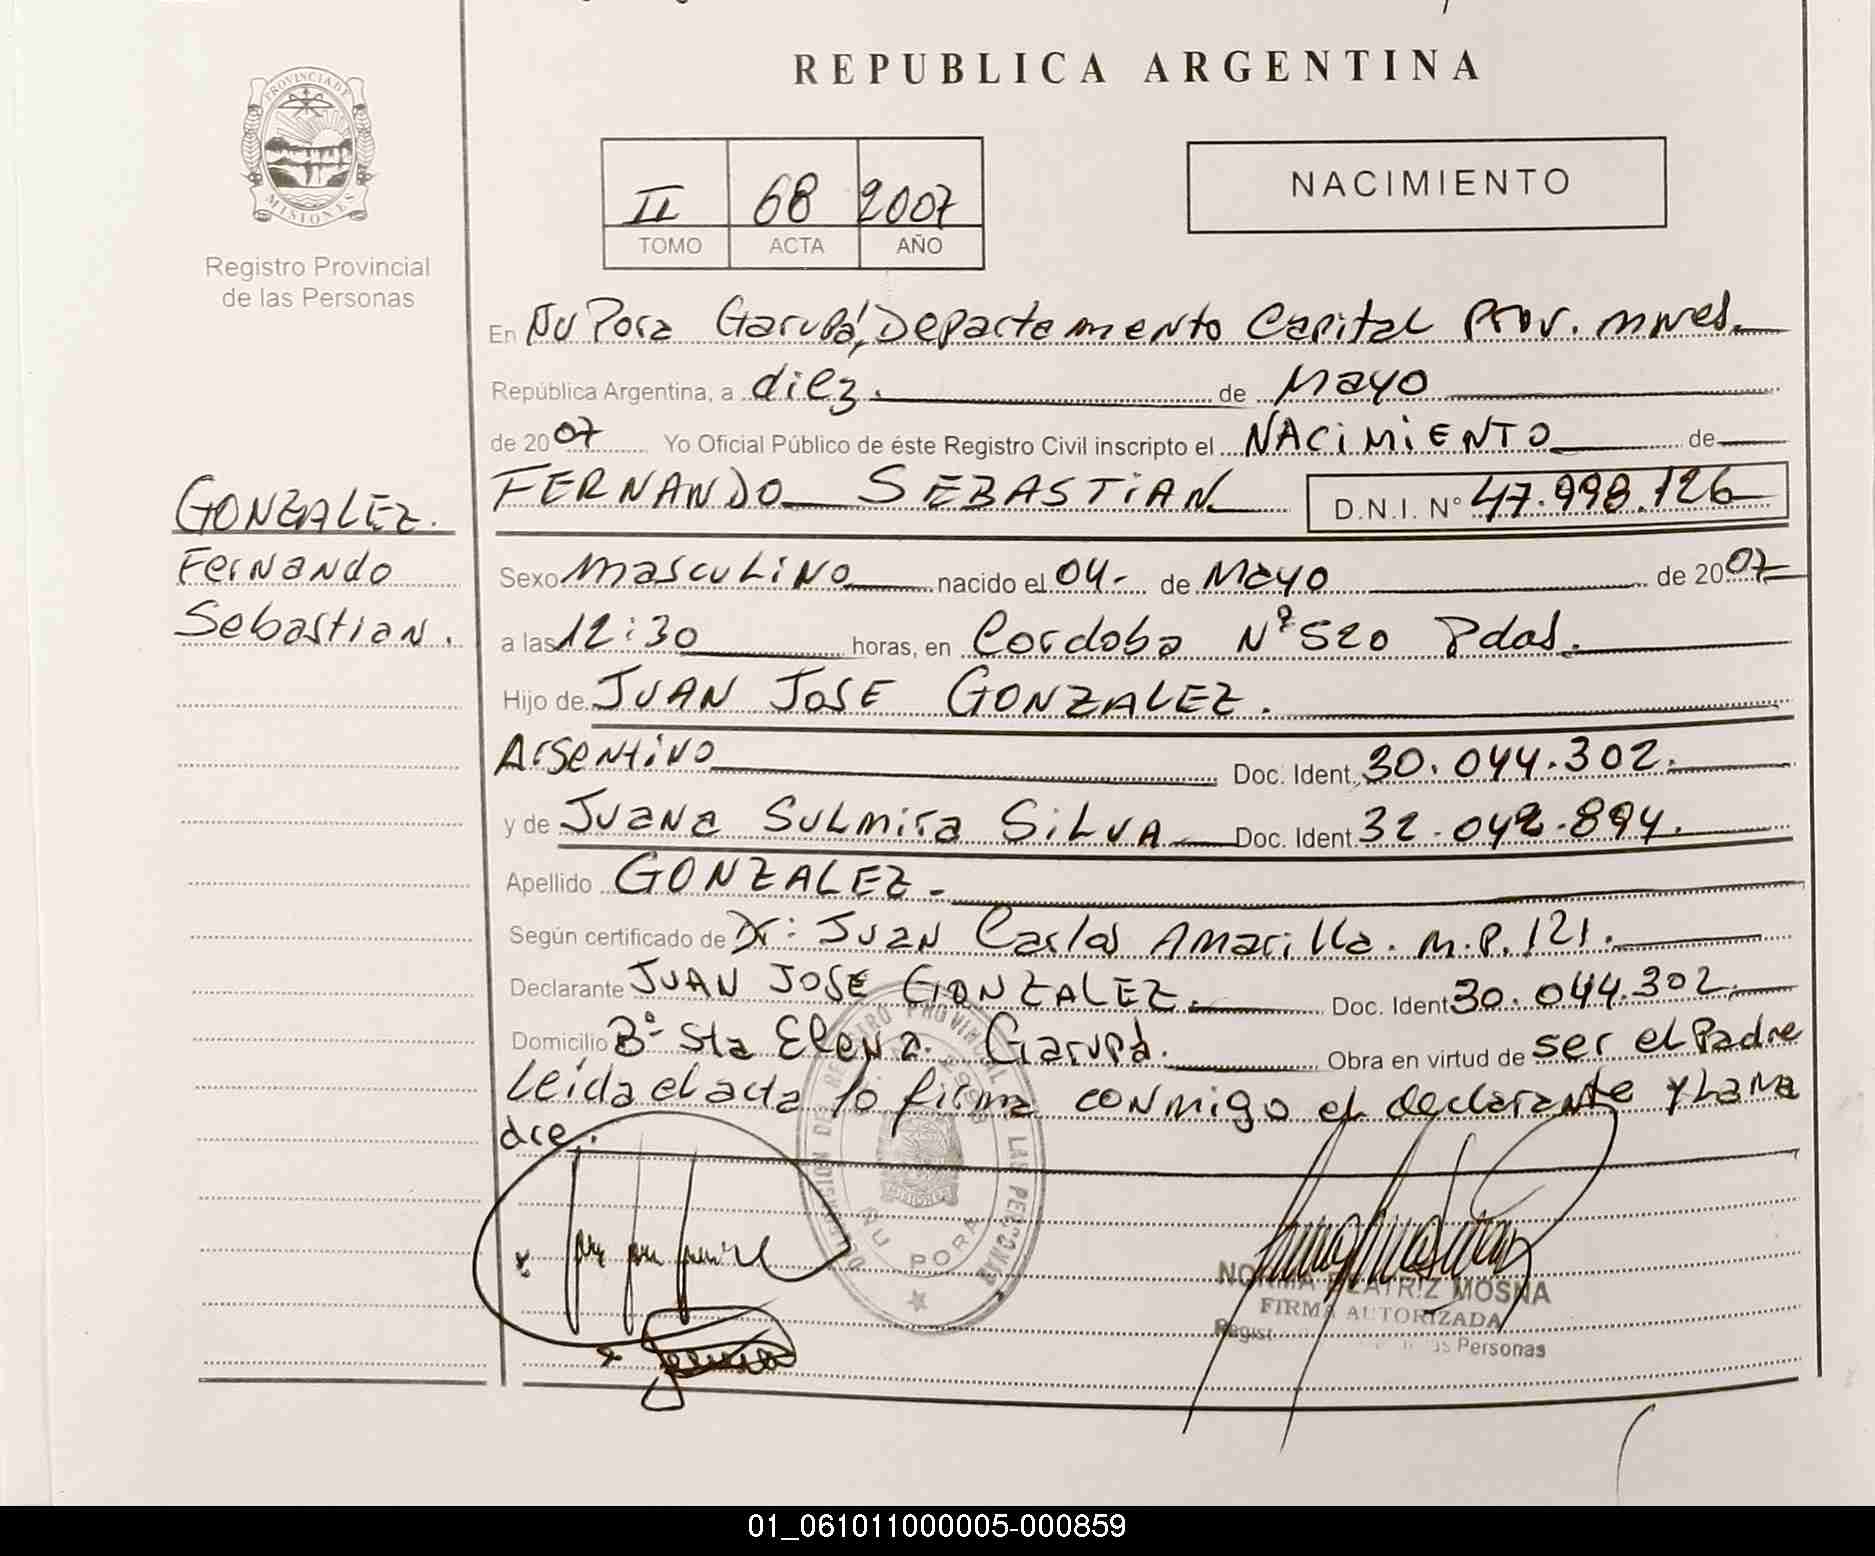 REPUBLICA ARGENTINA
PROVINCIA DE
MISIONES
Registro Provincial
de las Personas
II 68 2007
TOMO ACTA AÑO
NACIMIENTO
En Ñu Pora Garupá, Departamento Capital Prov. Mnes.
República Argentina, a diez. de Mayo
de 2007 Yo Oficial Público de éste Registro Civil inscripto el NACIMIENTO de
FERNANDO SEBASTIAN D.N.I. N° 47.998.126
GONZALEZ.
Fernando
Sebastian.
Sexo masculino nacido el 04- de Mayo de 2007
a las 12:30 horas, en Cordoba Nº 520 Pdas.
Hijo de JUAN JOSE GONZALEZ.
Argentino Doc. Ident. 30.044.302.
y de Juana Sulmira SILVA Doc. Ident. 32.042.894.
Apellido GONZALEZ-
Según certificado de Dr: Juan Carlos Amarilla. M.P. 121.
Declarante JUAN JOSE GONZALEZ. Doc. Ident 30.044.302.
Domicilio Bº Sta Elena. Garupá. Obra en virtud de ser el Padre
Leída el acta lo firma conmigo el declarante y La Ma
dre.
DELEGACION DE REGISTRO PROVINCIAL DE LAS PERSONAS
ÑU PORA
NORMA BEATRIZ MOSNA
FIRMA AUTORIZADA
Personas
01_061011000005-000859